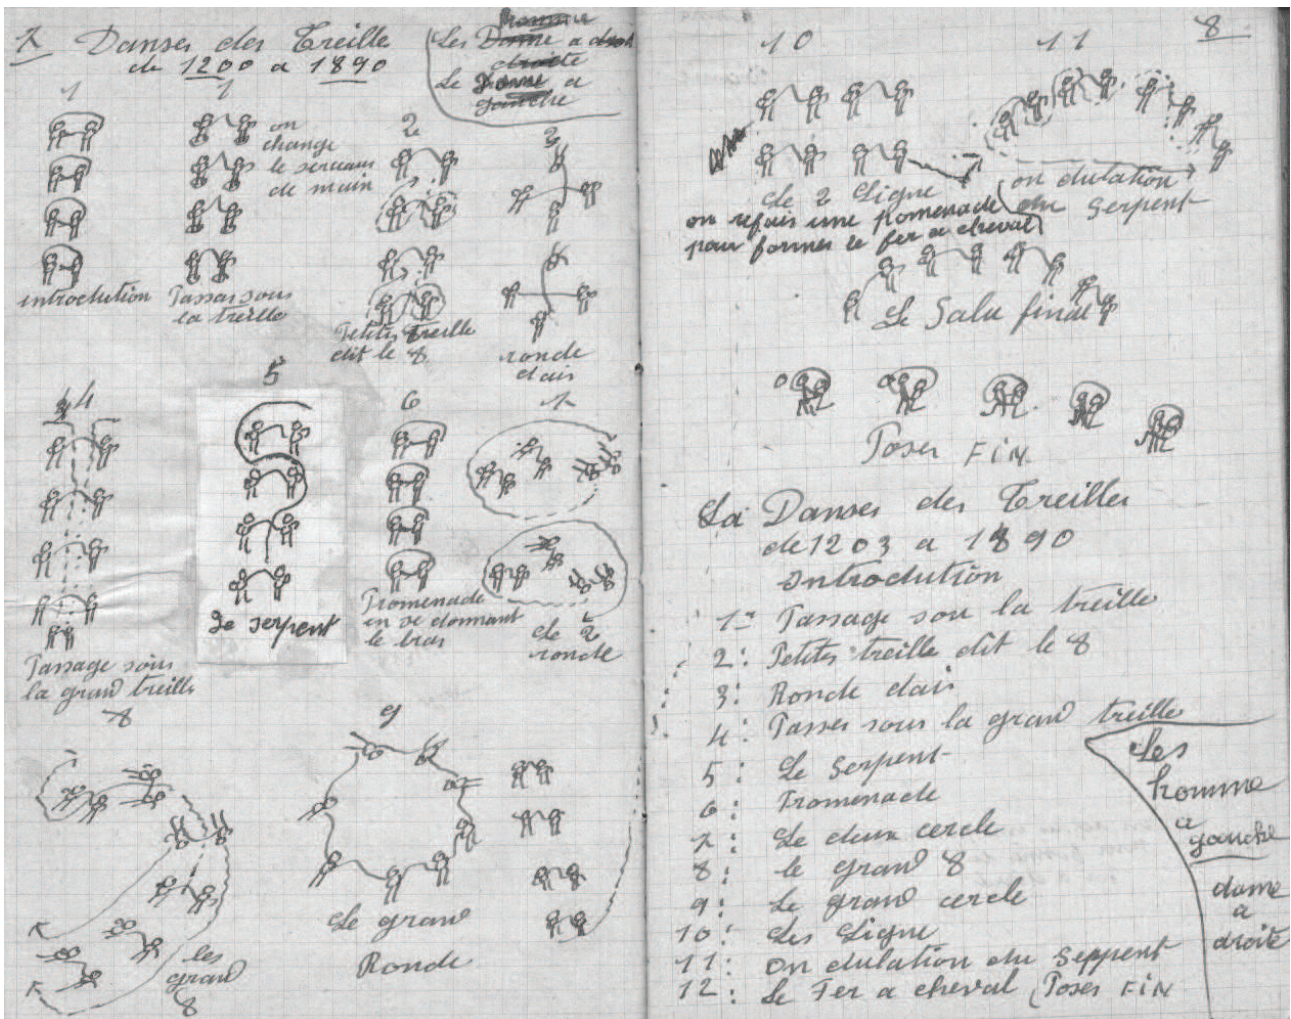 7 Danses des Treille
de 1200 a 1890
Les Homme a
droite
Le a
gauche
1
1
on
change
le
de main
2
2
introdution
Passer sous
la treille
Petites treille
dit le 8
ronde
dais
4
5
6
7
Passage sous
la grand treille
Le serpent
Promenade
en se donnant
le bras
de 2
ronde
8
9
les
grand
8
Le grand
Ronde
8
10
11
de 2 Ligne
on refais une pomenade
pour former le fer a cheval
on dulation
du Serpent
Le Salu final
Poser FiN
La Danses des Treilles
de 1203 a 1890
introdution
1: Passage sou la treille
2: Petites treille dit le 8
3: Ronde dais
4: Passer sous la grand treille
5: Le Serpent
6: Promenade
7: Le deux cercle
8: le grand 8
9: Le grand cercle
10: Les Ligne
11: on dulation du Seppent
12: Le Fer a cheval (Poser FiN
Les
homme
a
gauche
dame
a
droite